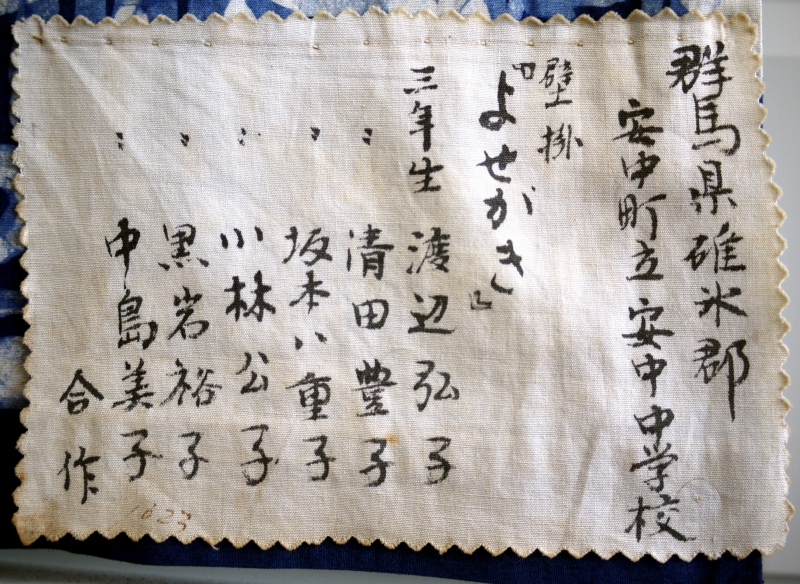 群馬県碓氷郡
安中町立安中中学校
壁掛
『よせがき』
三年生 渡辺弘子
〃 清田豊子
〃 坂本八重子
〃 小林公子
〃 黒岩裕子
〃 中島美子
合作
1623